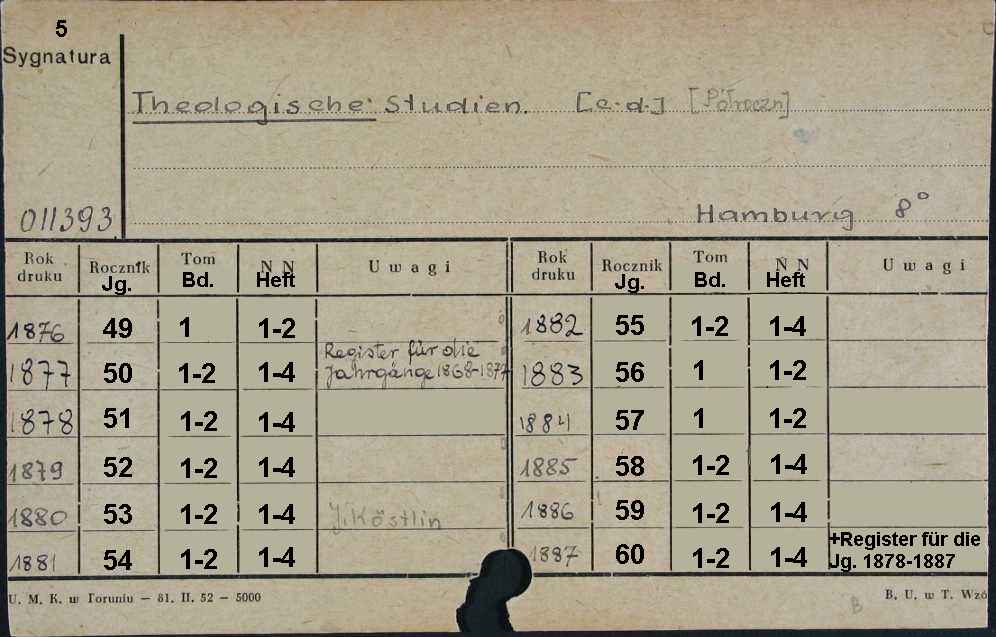 5
Sygnatura
Theologische Studien. [c.d.] [Półroczn]
011393
Hamburg 8°
Rok druku Rocznik Jg. Tom Bd. NN Heft Uwagi Rok druku Rocznik Jg. Tom Bd. NN Heft Uwagi
1876 49 1 1-2 1882 55 1-2 1-4
Register für die
1877 50 1-2 1-4 Jahrgänge 1868-1877 1883 56 1 1-2
1878 51 1-2 1-4 1884 57 1 1-2
1879 52 1-2 1-4 1885 58 1-2 1-4
1880 53 1-2 1-4 J. Köstlin 1886 59 1-2 1-4
+Register für die
1881 54 1-2 1-4 1887 60 1-2 1-4 Jg. 1878-1887
U. M. K. w Toruniu — 81. II. 52 — 5000
B
B. U. w T. Wzó